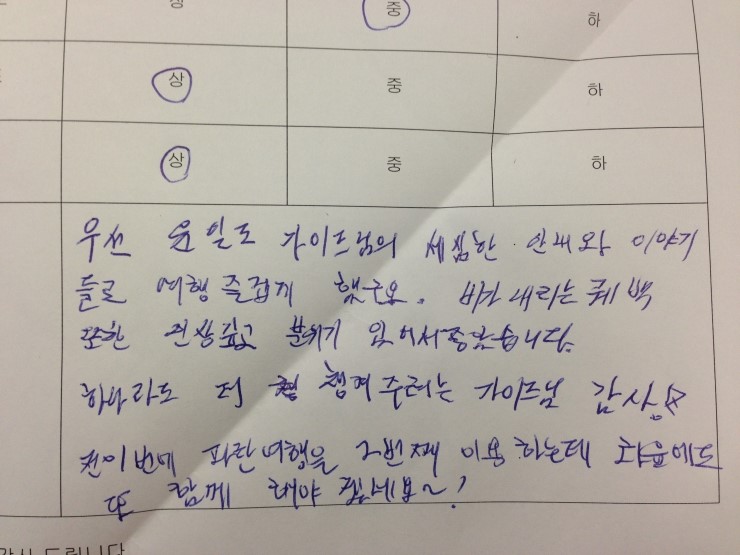 상 중 하
상 중 하
상 중 하
우선 윤일도 가이드님의 세심한 안내와 이야기
들로 여행 즐겁게 했구요. 비가 내리는 퀘백
또한 인상깊고 분위기 있어서좋았습니다.
하나라도 더 챙겨주려는 가이드님 감사!
전 이번에 파란여행을 2번째 이용하는데 다음에도
또 함께 해야 될네요~!
감사 드립니다